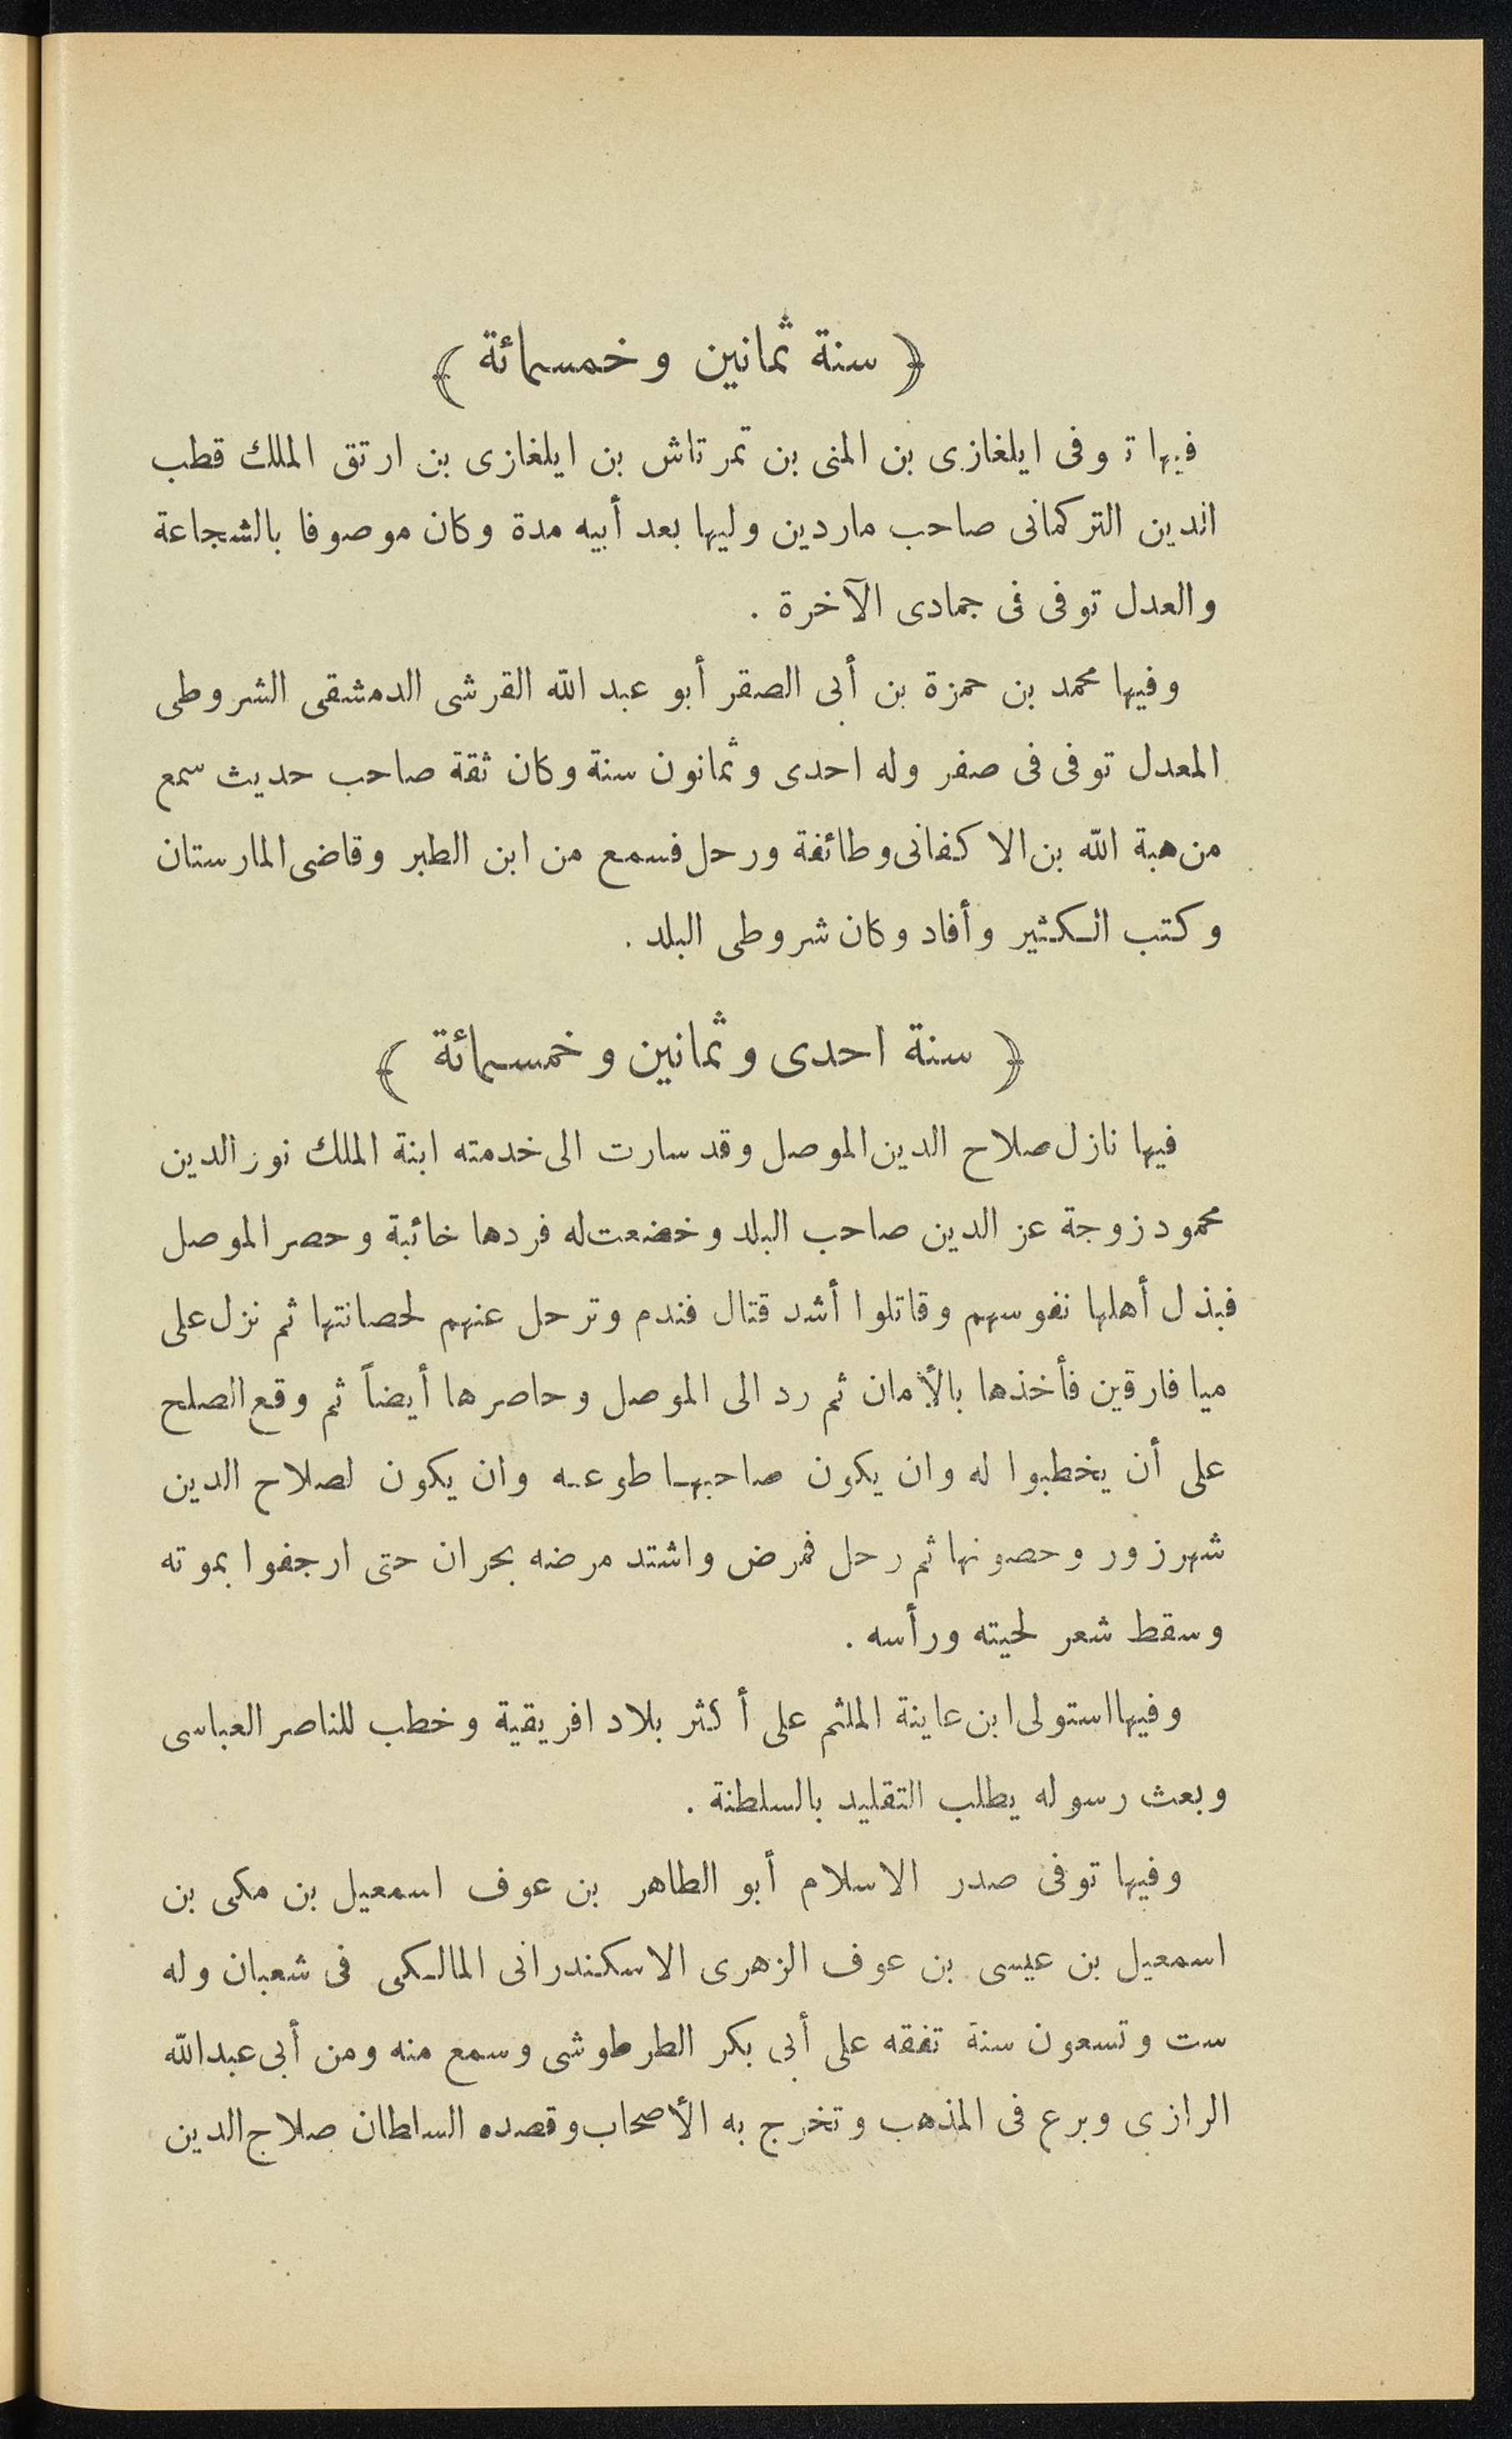 ﴿ سنة ثمانين وخمسمائة ﴾
فيها توفى ايلغازى بن المنى بن تمرتاش بن ايلغازى بن ارتق الملك قطب
الدين التركمانى صاحب ماردين وليها بعد أبيه مدة وكان موصوفا بالشجاعة
والعدل توفى فى جمادى الآخرة .
وفيها محمد بن حمزة بن أبى الصقر أبو عبد الله القرشى الدمشقى الشروطى
المعدل توفى فى صفر وله احدى وثمانون سنة وكان ثقة صاحب حديث سمع
من هبة الله بن الاكفانى وطائفة ورحل فسمع من ابن الطبر وقاضى المارستان
وكتب الكثير وأفاد وكان شروطى البلد .
﴿ سنة احدى وثمانين وخمسمائة ﴾
فيها نازل صلاح الدين الموصل وقد سارت الى خدمته ابنة الملك نور الدين
محمود زوجة عز الدين صاحب البلد وخضعت له فردها خائبة وحصر الموصل
فبذل أهلها نفوسهم وقاتلوا أشد قتال فندم وترحل عنهم لحصانتها ثم نزل على
ميا فارقين فأخذها بالأمان ثم رد الى الموصل وحاصرها أيضاً ثم وقع الصلح
على أن يخطبوا له وان يكون صاحبها طوعه وان يكون لصلاح الدين
شهرزور وحصونها ثم رحل فمرض واشتد مرضه بحران حتى ارجفوا بموته
وسقط شعر لحيته ورأسه .
وفيها استولى ابن عاينة الملثم على أكثر بلاد افريقية وخطب للناصر العباسى
وبعث رسوله يطلب التقليد بالسلطنة .
وفيها توفى صدر الاسلام أبو الطاهر بن عوف اسمعيل بن مكى بن
اسمعيل بن عيسى بن عوف الزهرى الاسكندرانى المالكى فى شعبان وله
ست وتسعون سنة تفقه على أبى بكر الطرطوشى وسمع منه ومن أبى عبد الله
الرازى وبرع فى المذهب وتخرج به الأصحاب وقصده السلطان صلاح الدين